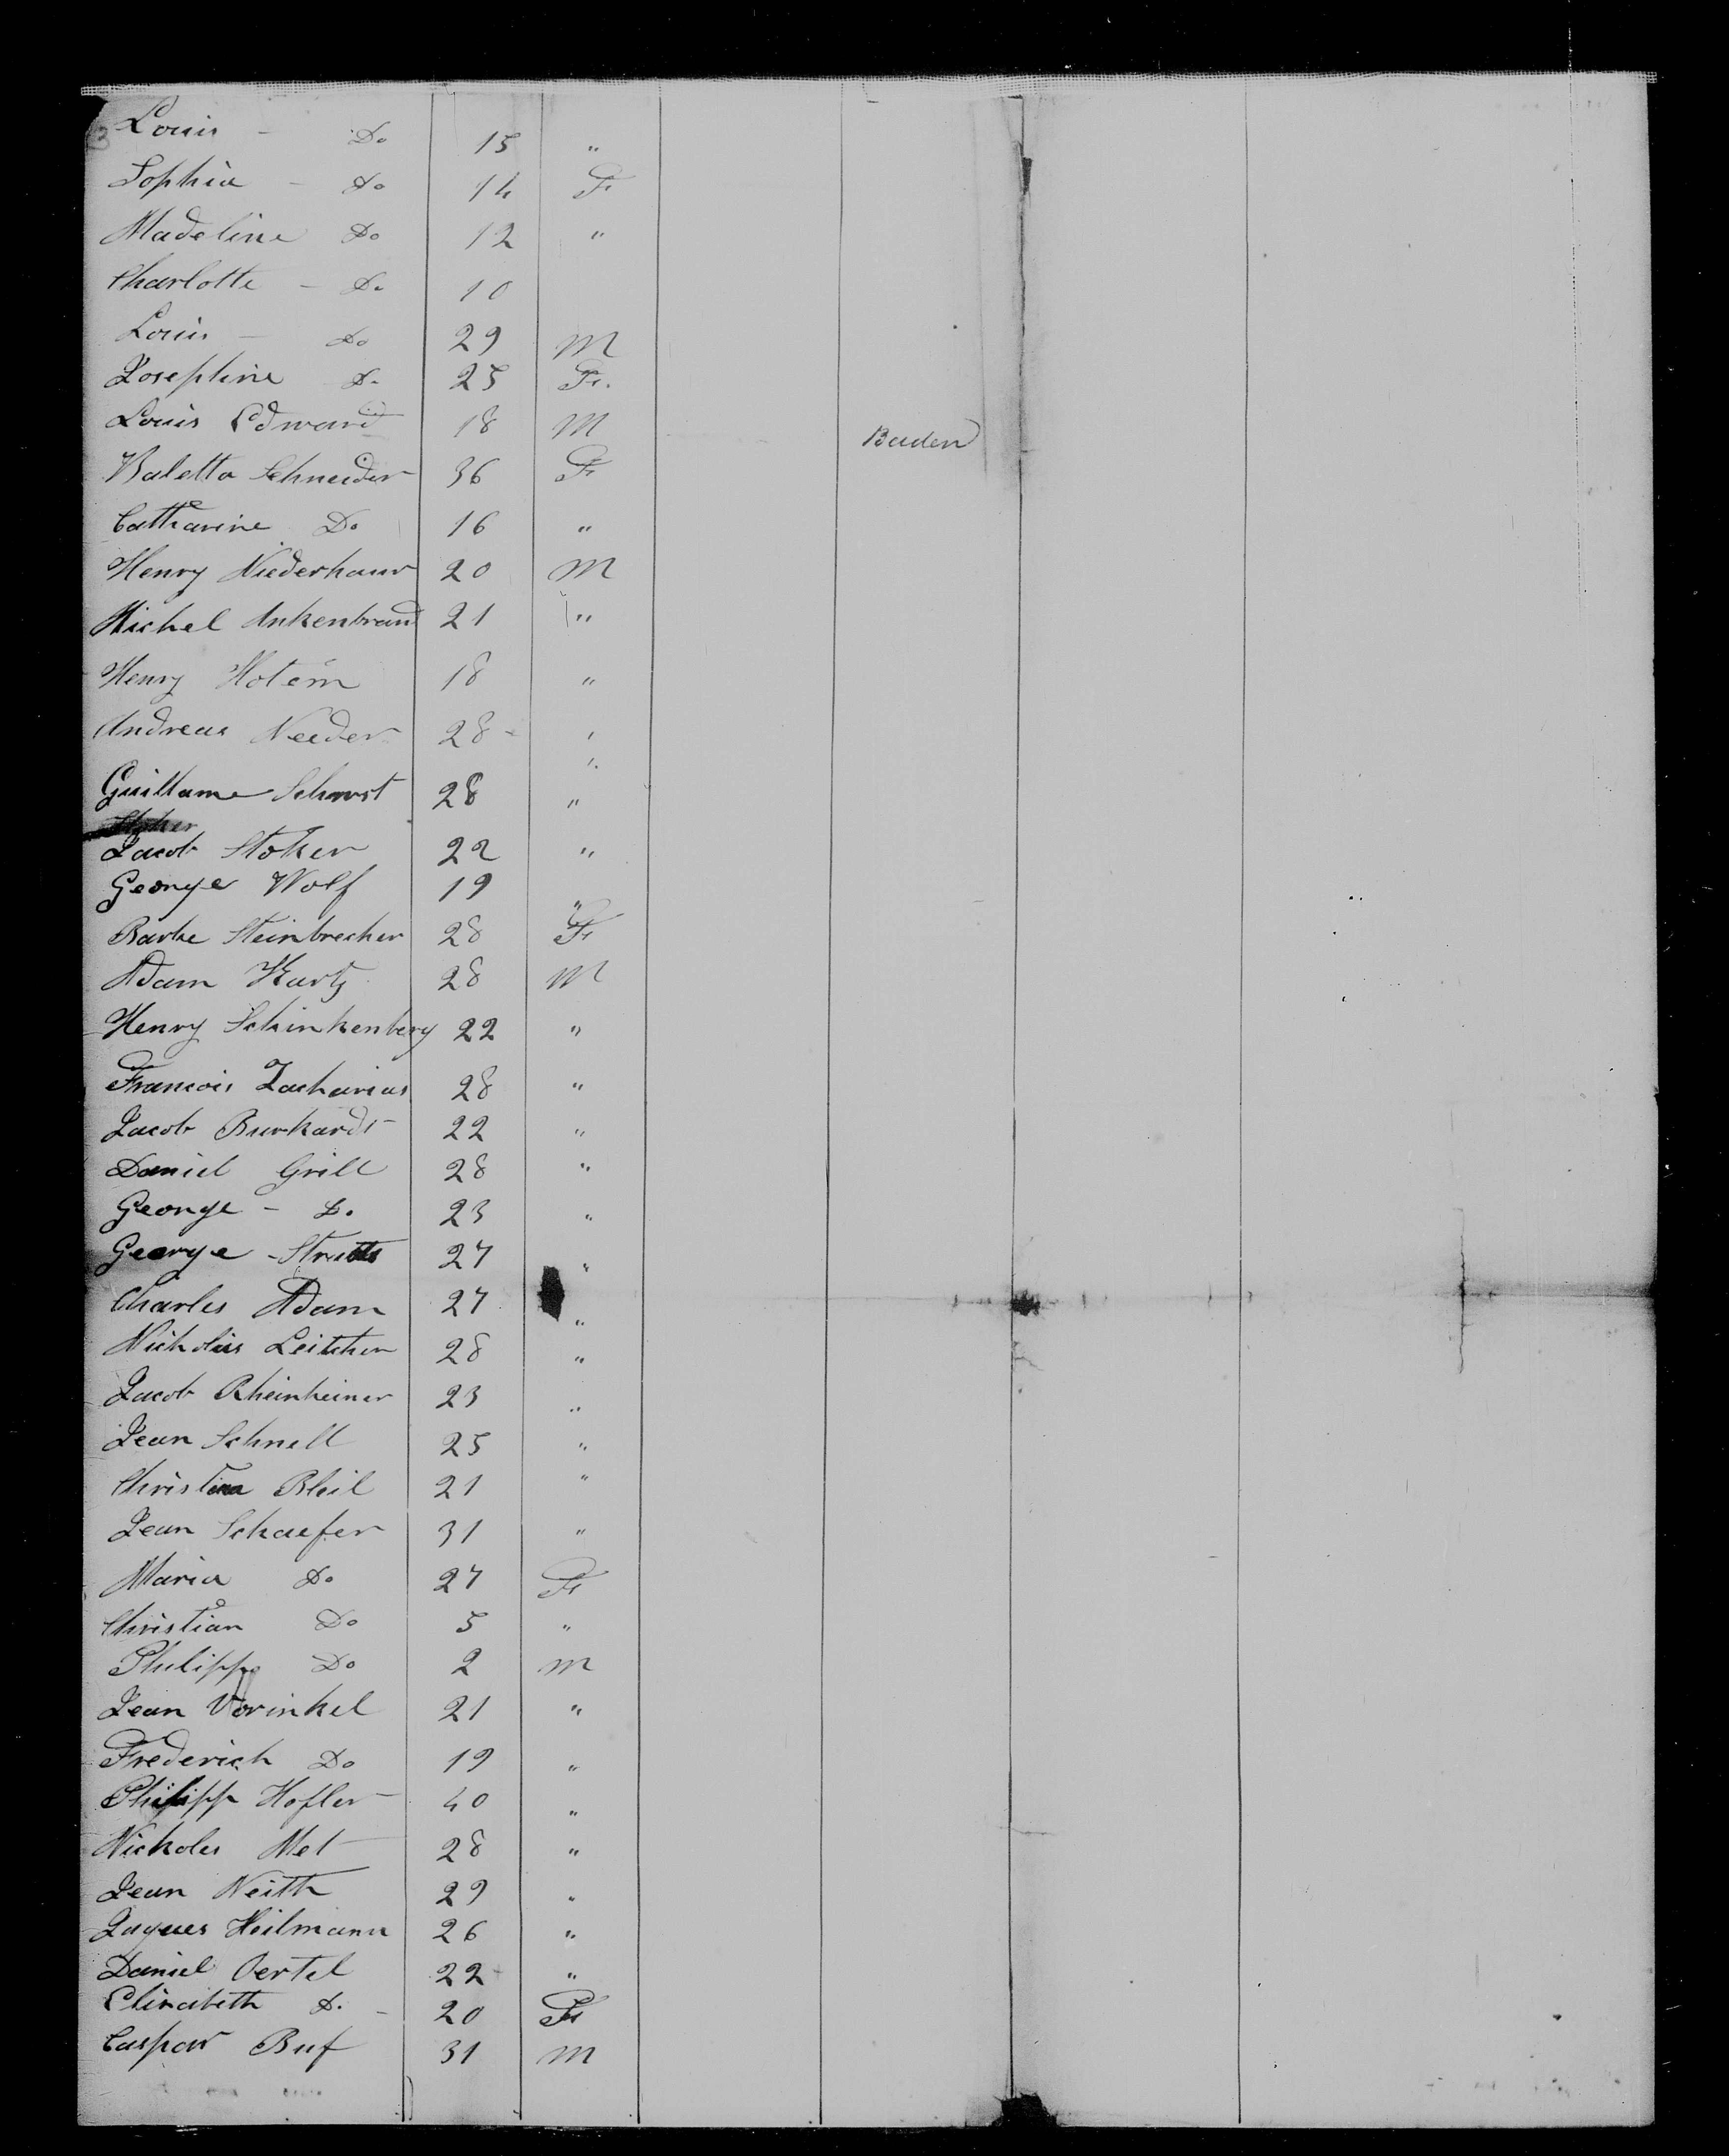 Louis - Do 15 "
Sophia - do 14 F
Madeline Do 12 "
Charlotte - Do 10
Louis - do 29 M
Josephine do 25 F.
Louis Edward 18 M Baden
Valetta Schneider 36 F
Catharine Do 16 "
Henry Niederhaur 20 M
Michel Ankenbrand 21 "
Henry Hotem 18 "
Andreas Needer 28 "
Guillame 28 "
Jacob Stoker 22 "
George Wolf 19 "
Barbe Steinbrecher 28 F
Adam Kurtz 28 M
Henry Schinkenberg 22 "
Francois Zacharias 28 "
Jacob Burkardt 22 "
Daniel Grill 28 "
George - Do 23 "
George 27 "
Charles Adam 27 "
Nicholas Leitcher 28 "
Jacob Rheinheimer 23 "
Jean Schnell 25 "
Bleil 21 "
Jean Schaefer 31 "
Maria Do 27 F
Christian Do 5 "
Philipp Do 2 M
Jean Vorinkel 21 "
Frederich Do 19 "
Philipp Hofler 40 "
Nicholes Met 28 "
Jean Neith 29 "
Jaques Heilmann 26 "
Daniel Oertel 22 "
Elizabeth do - 20 F
Caspar Buf 31 M